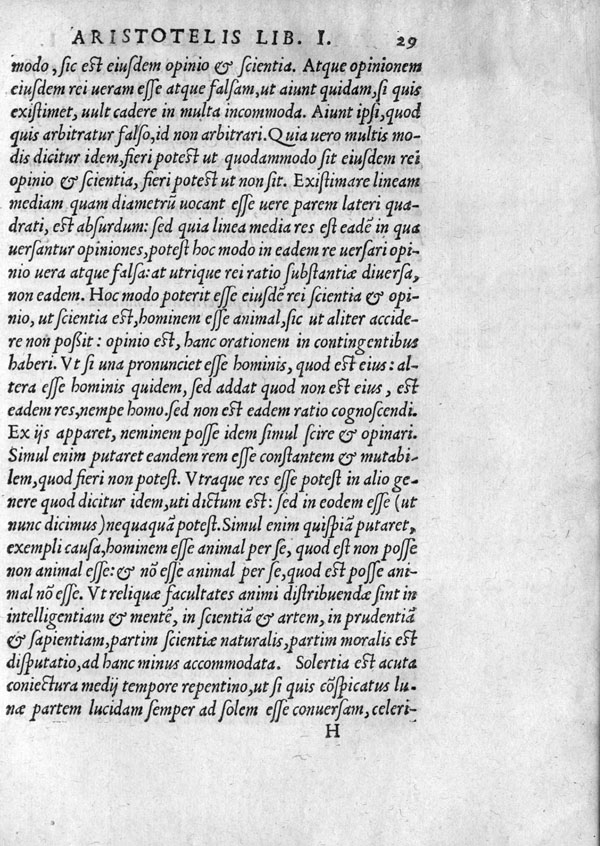 ARISTOTELIS LIB. I. 29
modo, sic est eiusdem opinio & scientia. Atque opinionem
eiusdem rei ueram esse atque falsam, ut aiunt quidam, si quis
existimet, uult cadere in multa incommoda. Aiunt ipsi, quod
quis arbitratur falso, id non arbitrari. Quia uero multis mo-
dis dicitur idem, fieri potest ut quodammodo sit eiusdem rei
opinio & scientia, fieri potest ut non sit. Existimare lineam
mediam quam diametrū uocant esse uere parem lateri qua-
drati, est absurdum: sed quia linea media res est eadē in qua
uersantur opiniones, potest hoc modo in eadem re uersari opi-
nio uera atque falsa: at utrique rei ratio substantiæ diuersa,
non eadem. Hoc modo poterit esse eiusdē rei scientia & opi-
nio, ut scientia est, hominem esse animal, sic ut aliter accide-
re non poßit: opinio est, hanc orationem in contingentibus
haberi. Vt si una pronunciet esse hominis, quod est eius: al-
tera esse hominis quidem, sed addat quod non est eius, est
eadem res, nempe homo. sed non est eadem ratio cognoscendi.
Ex ijs apparet, neminem posse idem simul scire & opinari.
Simul enim putaret eandem rem esse constantem & mutabi-
lem, quod fieri non potest. Vtraque res esse potest in alio ge-
nere quod dicitur idem, uti dictum est: sed in eodem esse (ut
nunc dicimus) nequaquā potest. Simul enim quispiā putaret,
exempli causa, hominem esse animal per se, quod est non posse
non animal esse: & nō esse animal per se, quod est posse ani-
mal nō esse. Vt reliquæ facultates animi distribuendæ sint in
intelligentiam & mentē, in scientiā & artem, in prudentiā
& sapientiam, partim scientiæ naturalis, partim moralis est
disputatio, ad hanc minus accommodata. Solertia est acuta
coniectura medij tempore repentino, ut si quis cōspicatus lu-
næ partem lucidam semper ad solem esse conuersam, celeri-
H